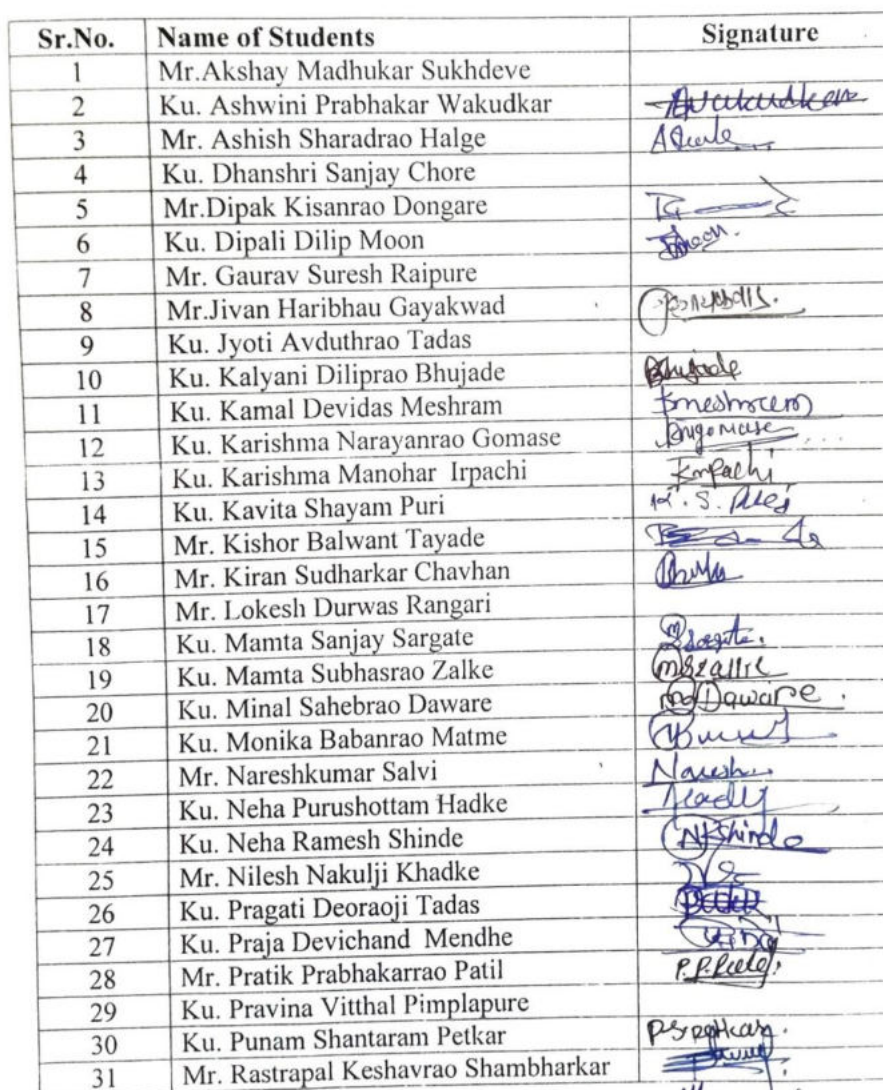 Sr.No. Name of Students Signature
1 Mr.Akshay Madhukar Sukhdeve
2 Ku. Ashwini Prabhakar Wakudkar
3 Mr. Ashish Sharadrao Halge
4 Ku. Dhanshri Sanjay Chore
5 Mr.Dipak Kisanrao Dongare
6 Ku. Dipali Dilip Moon
7 Mr. Gaurav Suresh Raipure
8 Mr.Jivan Haribhau Gayakwad
9 Ku. Jyoti Avduthrao Tadas
10 Ku. Kalyani Diliprao Bhujade Bhujade
11 Ku. Kamal Devidas Meshram
12 Ku. Karishma Narayanrao Gomase
13 Ku. Karishma Manohar Irpachi
14 Ku. Kavita Shayam Puri
15 Mr. Kishor Balwant Tayade
16 Mr. Kiran Sudharkar Chavhan
17 Mr. Lokesh Durwas Rangari
18 Ku. Mamta Sanjay Sargate
19 Ku. Mamta Subhasrao Zalke
20 Ku. Minal Sahebrao Daware Daware.
21 Ku. Monika Babanrao Matme
22 Mr. Nareshkumar Salvi Naresh
23 Ku. Neha Purushottam Hadke
24 Ku. Neha Ramesh Shinde NRShinde
25 Mr. Nilesh Nakulji Khadke
26 Ku. Pragati Deoraoji Tadas
27 Ku. Praja Devichand Mendhe
28 Mr. Pratik Prabhakarrao Patil
29 Ku. Pravina Vitthal Pimplapure
30 Ku. Punam Shantaram Petkar
31 Mr. Rastrapal Keshavrao Shambharkar